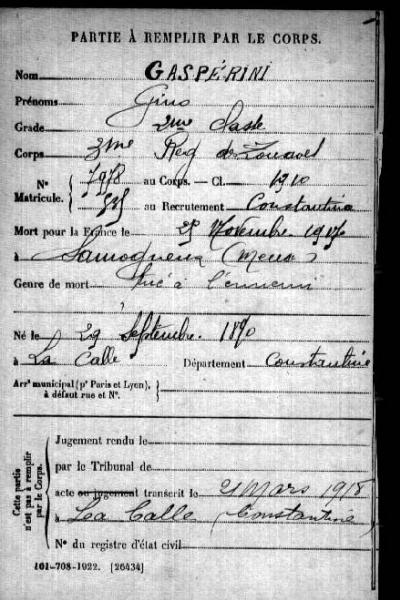 PARTIE À REMPLIR PAR LE CORPS.
Nom GASPÉRINI
Prénoms Gino
Grade 2me Classe
Corps 3me Reg de Zouaves
N° 7918 au Corps. — Cl. 1910
Matricule. au Recrutement Constantine
Mort pour la France le 25 Novembre 1917
à Samogneux (Meuse)
Genre de mort Tué à l'ennemi
Né le 29 Septembre 1890
à La Calle Département Constantine
Arrt municipal (pr Paris et Lyon),
à défaut rue et N°.
Cette partie
n'est pas à remplir
par le Corps.
Jugement rendu le
par le Tribunal de
acte ou jugement transcrit le Mars 1918
à La Calle (Constantine)
N° du registre d'état civil
101-708-1922. [26434]